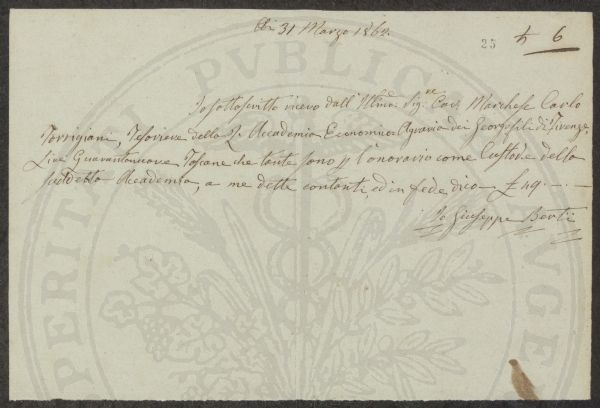 Di 31 Marzo 1862.
25
6
Io sottoscritto ricevo dall' Illmo. Sig.re Cav. Marchese Carlo
Torrigiani, Tesoriere della I. Accademia Economico Agraria dei Georgofili di Firenze,
Lire Quarantanove Toscane che tante sono p l'onorario come Custode della
suddetta Accademia, a me dette contanti, ed in fede dico £ 49. . —
Io Giuseppe Berti
PERITATI PUBLICAE AUGE